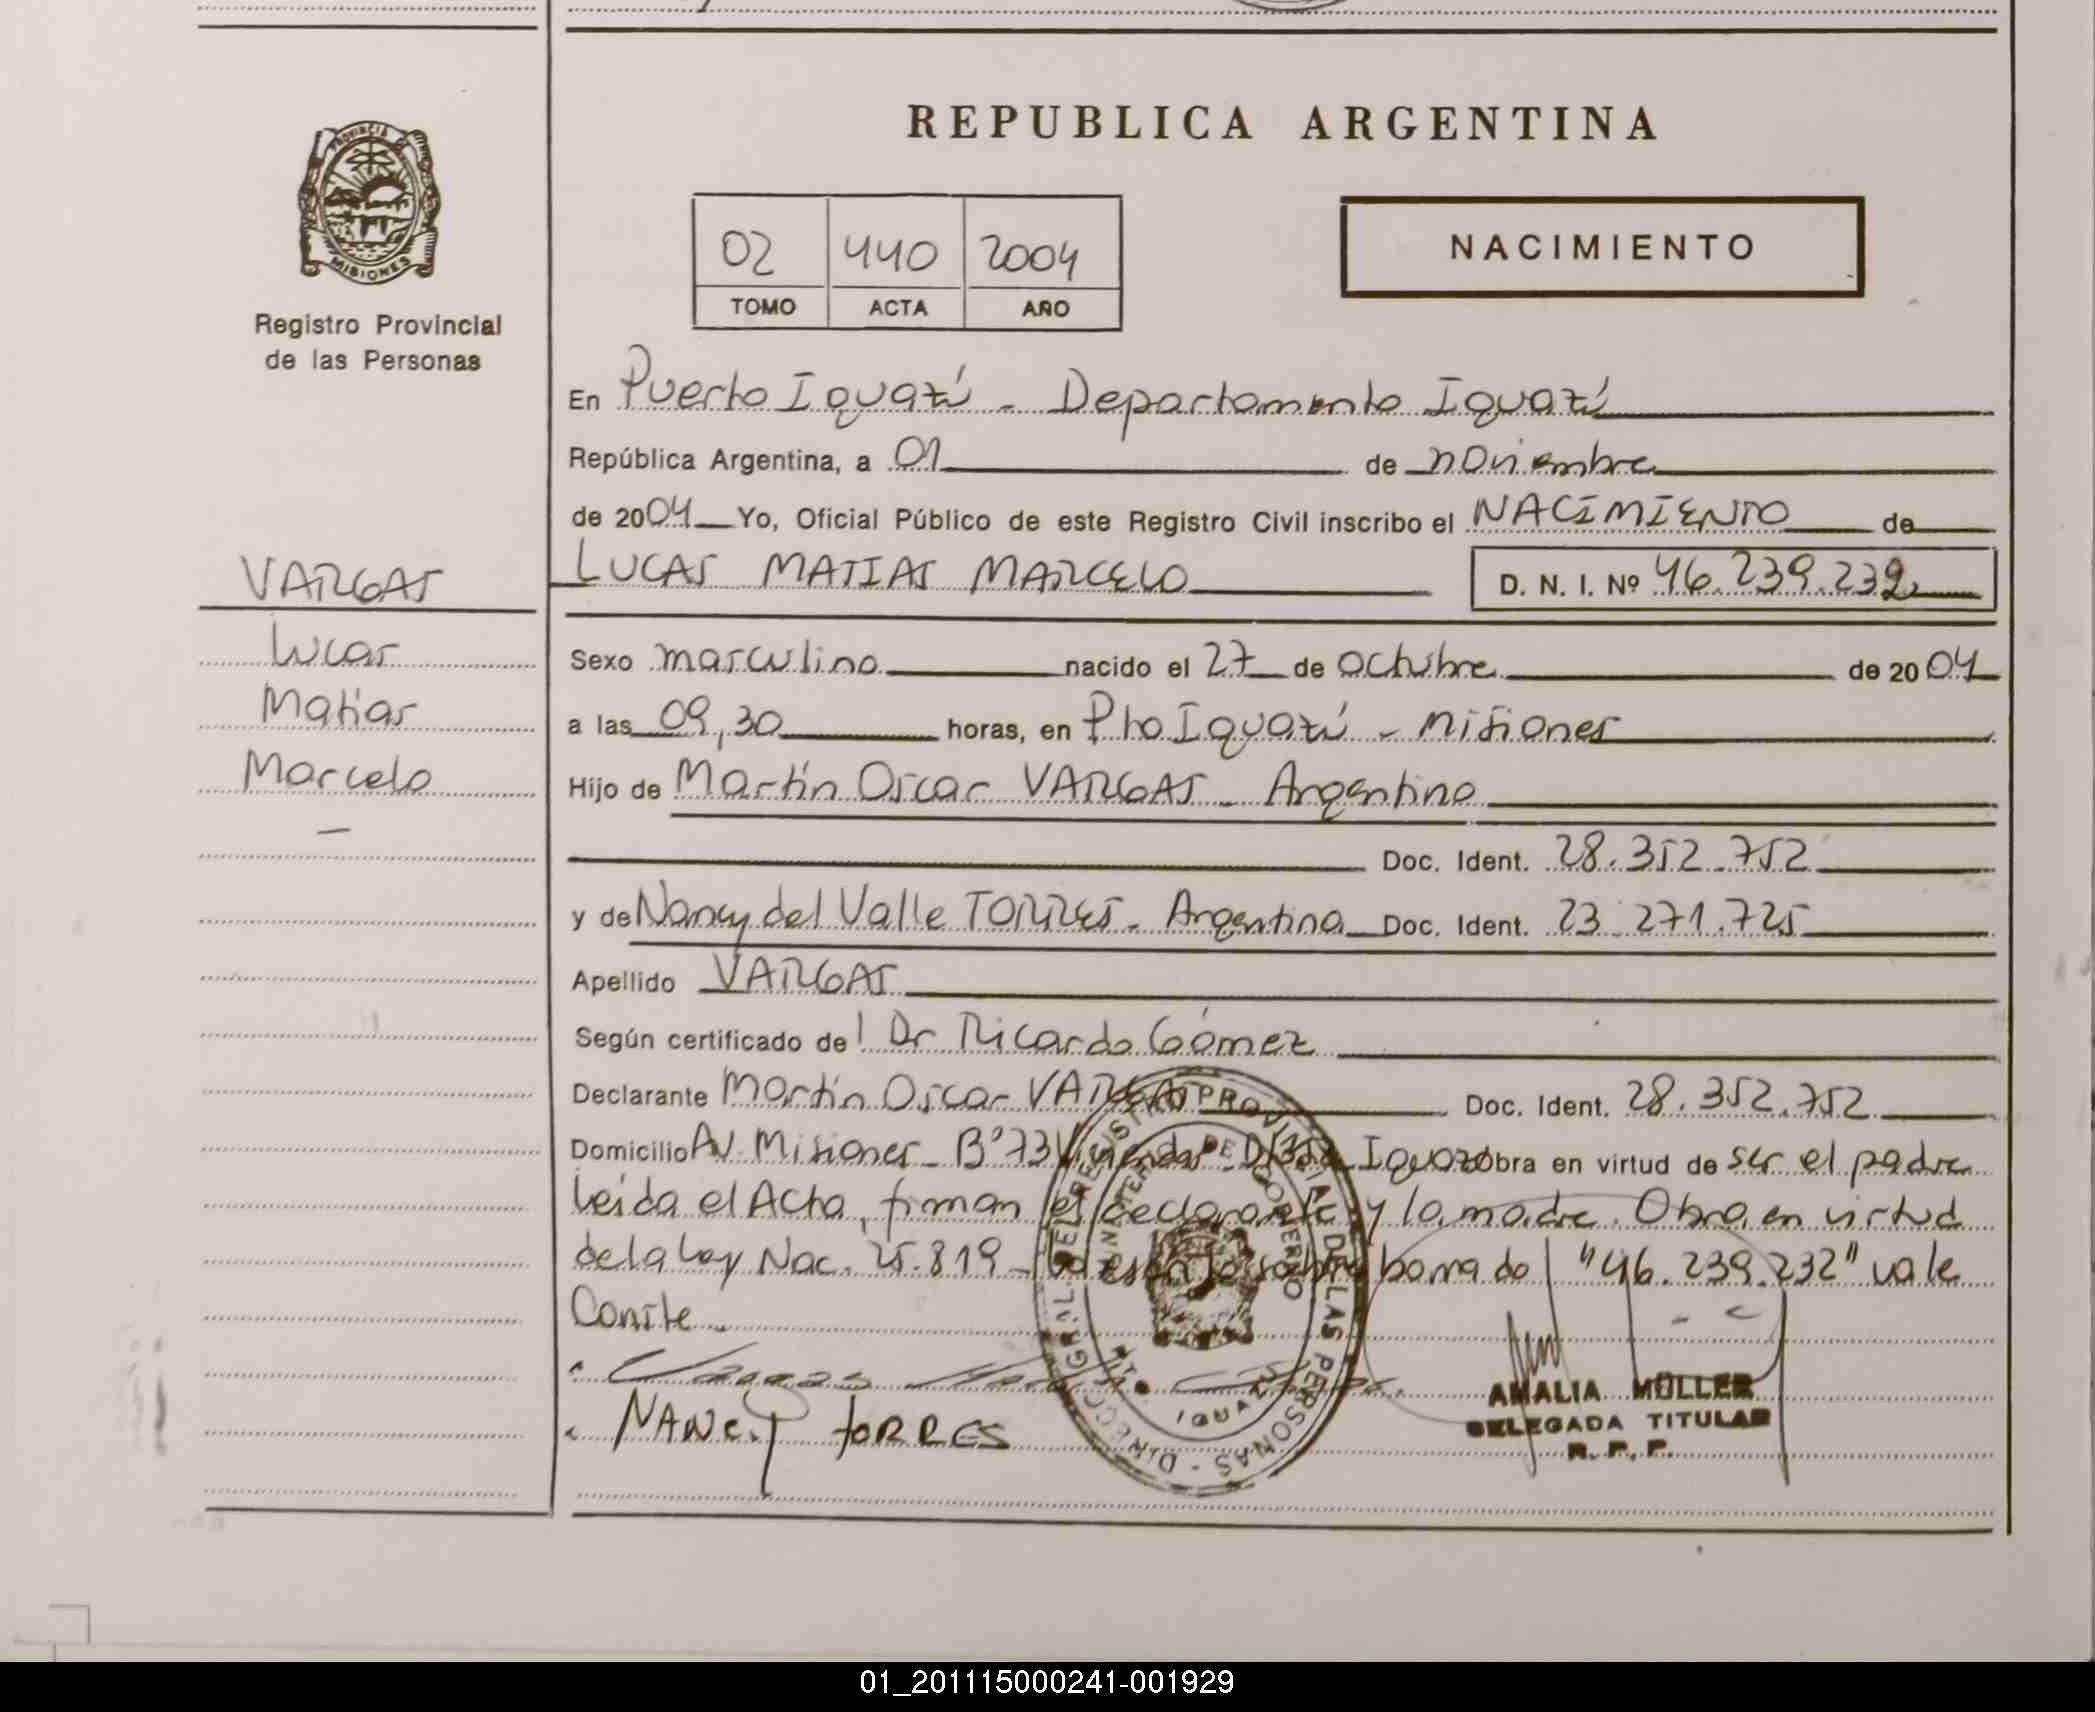 REPUBLICA ARGENTINA
PROVINCIA
MISIONES
Registro Provincial
de las Personas
02 440 2004
TOMO ACTA AÑO
NACIMIENTO
En Puerto Iguazú - Departamento Iguazú
República Argentina, a 01 de noviembre
de 2004 Yo, Oficial Público de este Registro Civil inscribo el NACIMIENTO de
VARGAS
LUCAS MATIAS MARCELO D. N. I. Nº 46.239.232
Lucas
Matías
Marcelo
Sexo masculino nacido el 27 de octubre de 2004
a las 09,30 horas, en Pto Iguazú - Misiones
Hijo de Martín Oscar VARGAS - Argentino
Doc. Ident. 28.352.752
y de Nancy del Valle TORRES - Argentina Doc. Ident. 23.271.725
Apellido VARGAS
Según certificado del Dr Ricardo Gómez
Declarante Martín Oscar VARGAS Doc. Ident. 28.352.752
Domicilio Av. Misiones - Bº 73 Viviendas - Iguazú obra en virtud de ser el padre
Leída el Acta, firman el declarante y la madre. Obra en virtud
de la Ley Nac. 25.819 - Lo escrito sobre borrado "46.239.232" vale
Conste
Vargas
NANCY TORRES
DIRECC. GRAL. DEL REGISTRO PROVINCIAL DE LAS PERSONAS
IGUAZU
AMALIA MÜLLER
DELEGADA TITULAR
R. P. P.
01_201115000241-001929